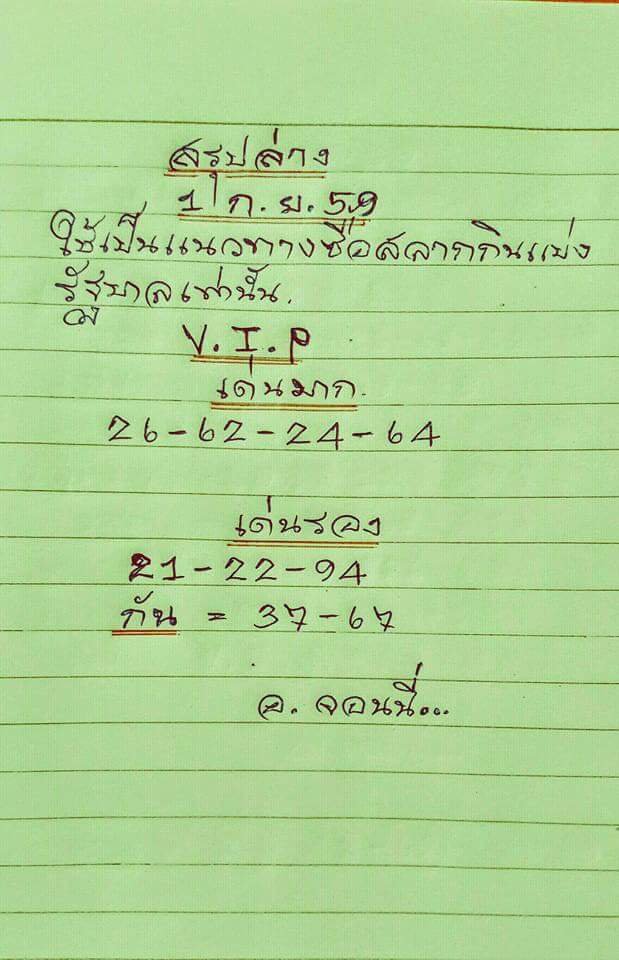 สรุปล่าง
1 ก.ย. 59
ใช้เป็นแนวทางซื้อสลากกินแบ่ง
รัฐบาลเท่านั้น.
V.I.P
เด่นมาก.
26-62-24-64
เด่นรอง
21-22-94
กัน = 37-67
อ. จอนนี่...